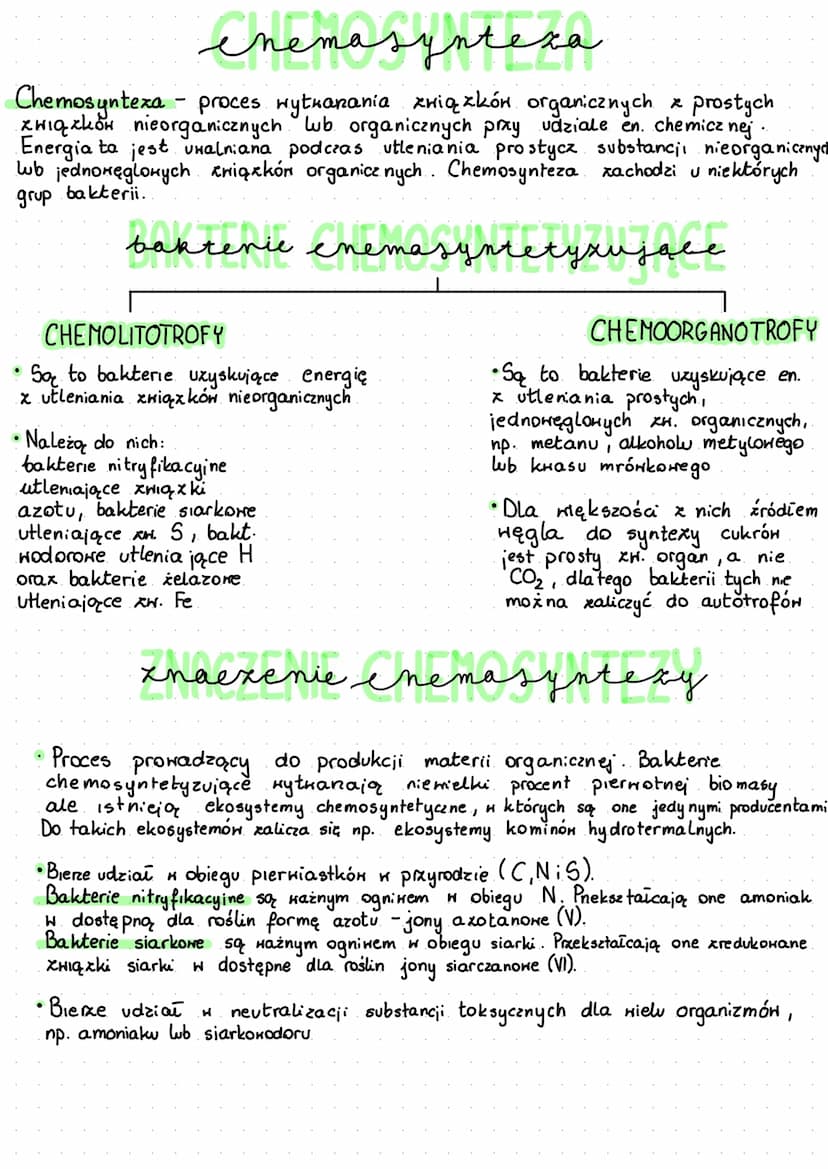 CHEMOSYNTEZA
chemosynteza
Chemosynteza - proces wytwarzania związków organicznych z prostych
związków nieorganicznych lub organicznych przy udziale en. chemicznej.
Energia ta jest uwalniana podczas utleniania prostycz substancji nieorganicznych
lub jednowęglowych związków organicznych. Chemosynteza zachodzi u niektórych
grup bakterii.
BAKTERIE CHEMOSYNTETYZUJĄCE
bakterie chemosyntetyzujące
CHEMOLITOTROFY
• Są to bakterie uzyskujące energię
z utleniania związków nieorganicznych
• Należą do nich:
bakterie nitryfikacyjne
utleniające związki
azotu, bakterie siarkowe
utleniające zw. S, bakt.
wodorowe utleniające H
oraz bakterie żelazowe
utleniające zw. Fe
CHEMOORGANOTROFY
• Są to bakterie uzyskujące en.
z utleniania prostych,
jednowęglowych zw. organicznych,
np. metanu, alkoholu metylowego
lub kwasu mrówkowego
• Dla większości z nich źródłem
węgla do syntezy cukrów
jest prosty zw. organ, a nie
CO₂, dlatego bakterii tych nie
można zaliczyć do autotrofów
ZNACZENIE CHEMOSYNTEZY
znaczenie chemosyntezy
• Proces prowadzący do produkcji materii organicznej. Bakterie
chemosyntetyzujące wytwarzają niewielki procent pierwotnej biomasy
ale istnieją ekosystemy chemosyntetyczne, w których są one jedynymi producentami
Do takich ekosystemów zalicza się np. ekosystemy kominów hydrotermalnych.
• Bierze udział w obiegu pierwiastków w przyrodzie (C, N i S).
Bakterie nitryfikacyjne są ważnym ogniwem w obiegu N. Przekształcają one amoniak
w dostępną dla roślin formę azotu - jony azotanowe (V).
Bakterie siarkowe są ważnym ogniwem w obiegu siarki. Przekształcają one zredukowane
związki siarki w dostępne dla roślin jony siarczanowe (VI).
• Bierze udział w neutralizacji substancji toksycznych dla wielu organizmów,
np. amoniaku lub siarkowodoru